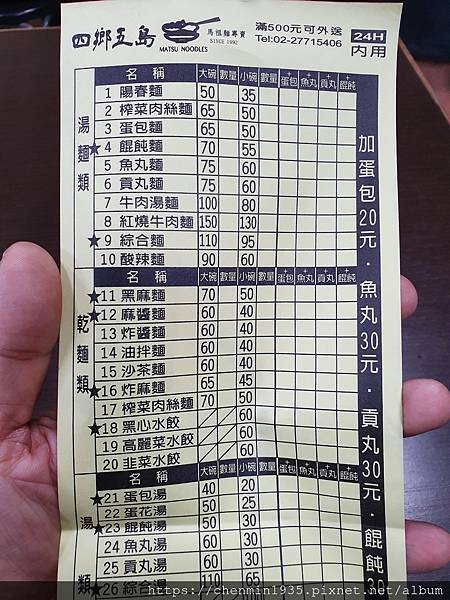 四鄉五島
MATSU NOODLES
馬祖麵專賣
SINCE 1992
滿500元可外送
Tel:02-27715406
24H
內用
湯麵類
名稱 大碗 數量 小碗 數量 +蛋包 +魚丸 +貢丸 +餛飩
1 陽春麵 50 35
2 榨菜肉絲麵 65 50
3 蛋包麵 65 50
★4 餛飩麵 70 55
5 魚丸麵 75 60
6 貢丸麵 75 60
7 牛肉湯麵 100 80
8 紅燒牛肉麵 150 130
★9 綜合麵 110 95
10 酸辣麵 90 60
乾麵類
名稱 大碗 數量 小碗 數量 +蛋包 +魚丸 +貢丸 +餛飩
★11 黑麻麵 70 50
★12 麻醬麵 60 40
13 炸醬麵 60 40
14 油拌麵 60 40
15 沙茶麵 60 40
★16 炸麻麵 65 45
17 榨菜肉絲麵 70 50
★18 黑心水餃 60
19 高麗菜水餃 60
20 韭菜水餃 60
湯類
名稱 大碗 數量 小碗 數量 +蛋包 +魚丸 +貢丸 +餛飩
★21 蛋包湯 40 20
22 蛋花湯 50 25
★23 餛飩湯 50 30
24 魚丸湯 60 30
25 貢丸湯 60 30
★26 綜合湯 110 65
加蛋包20元·魚丸30元·貢丸30元·餛飩30
https://chenmin1935.pixnet.net/album